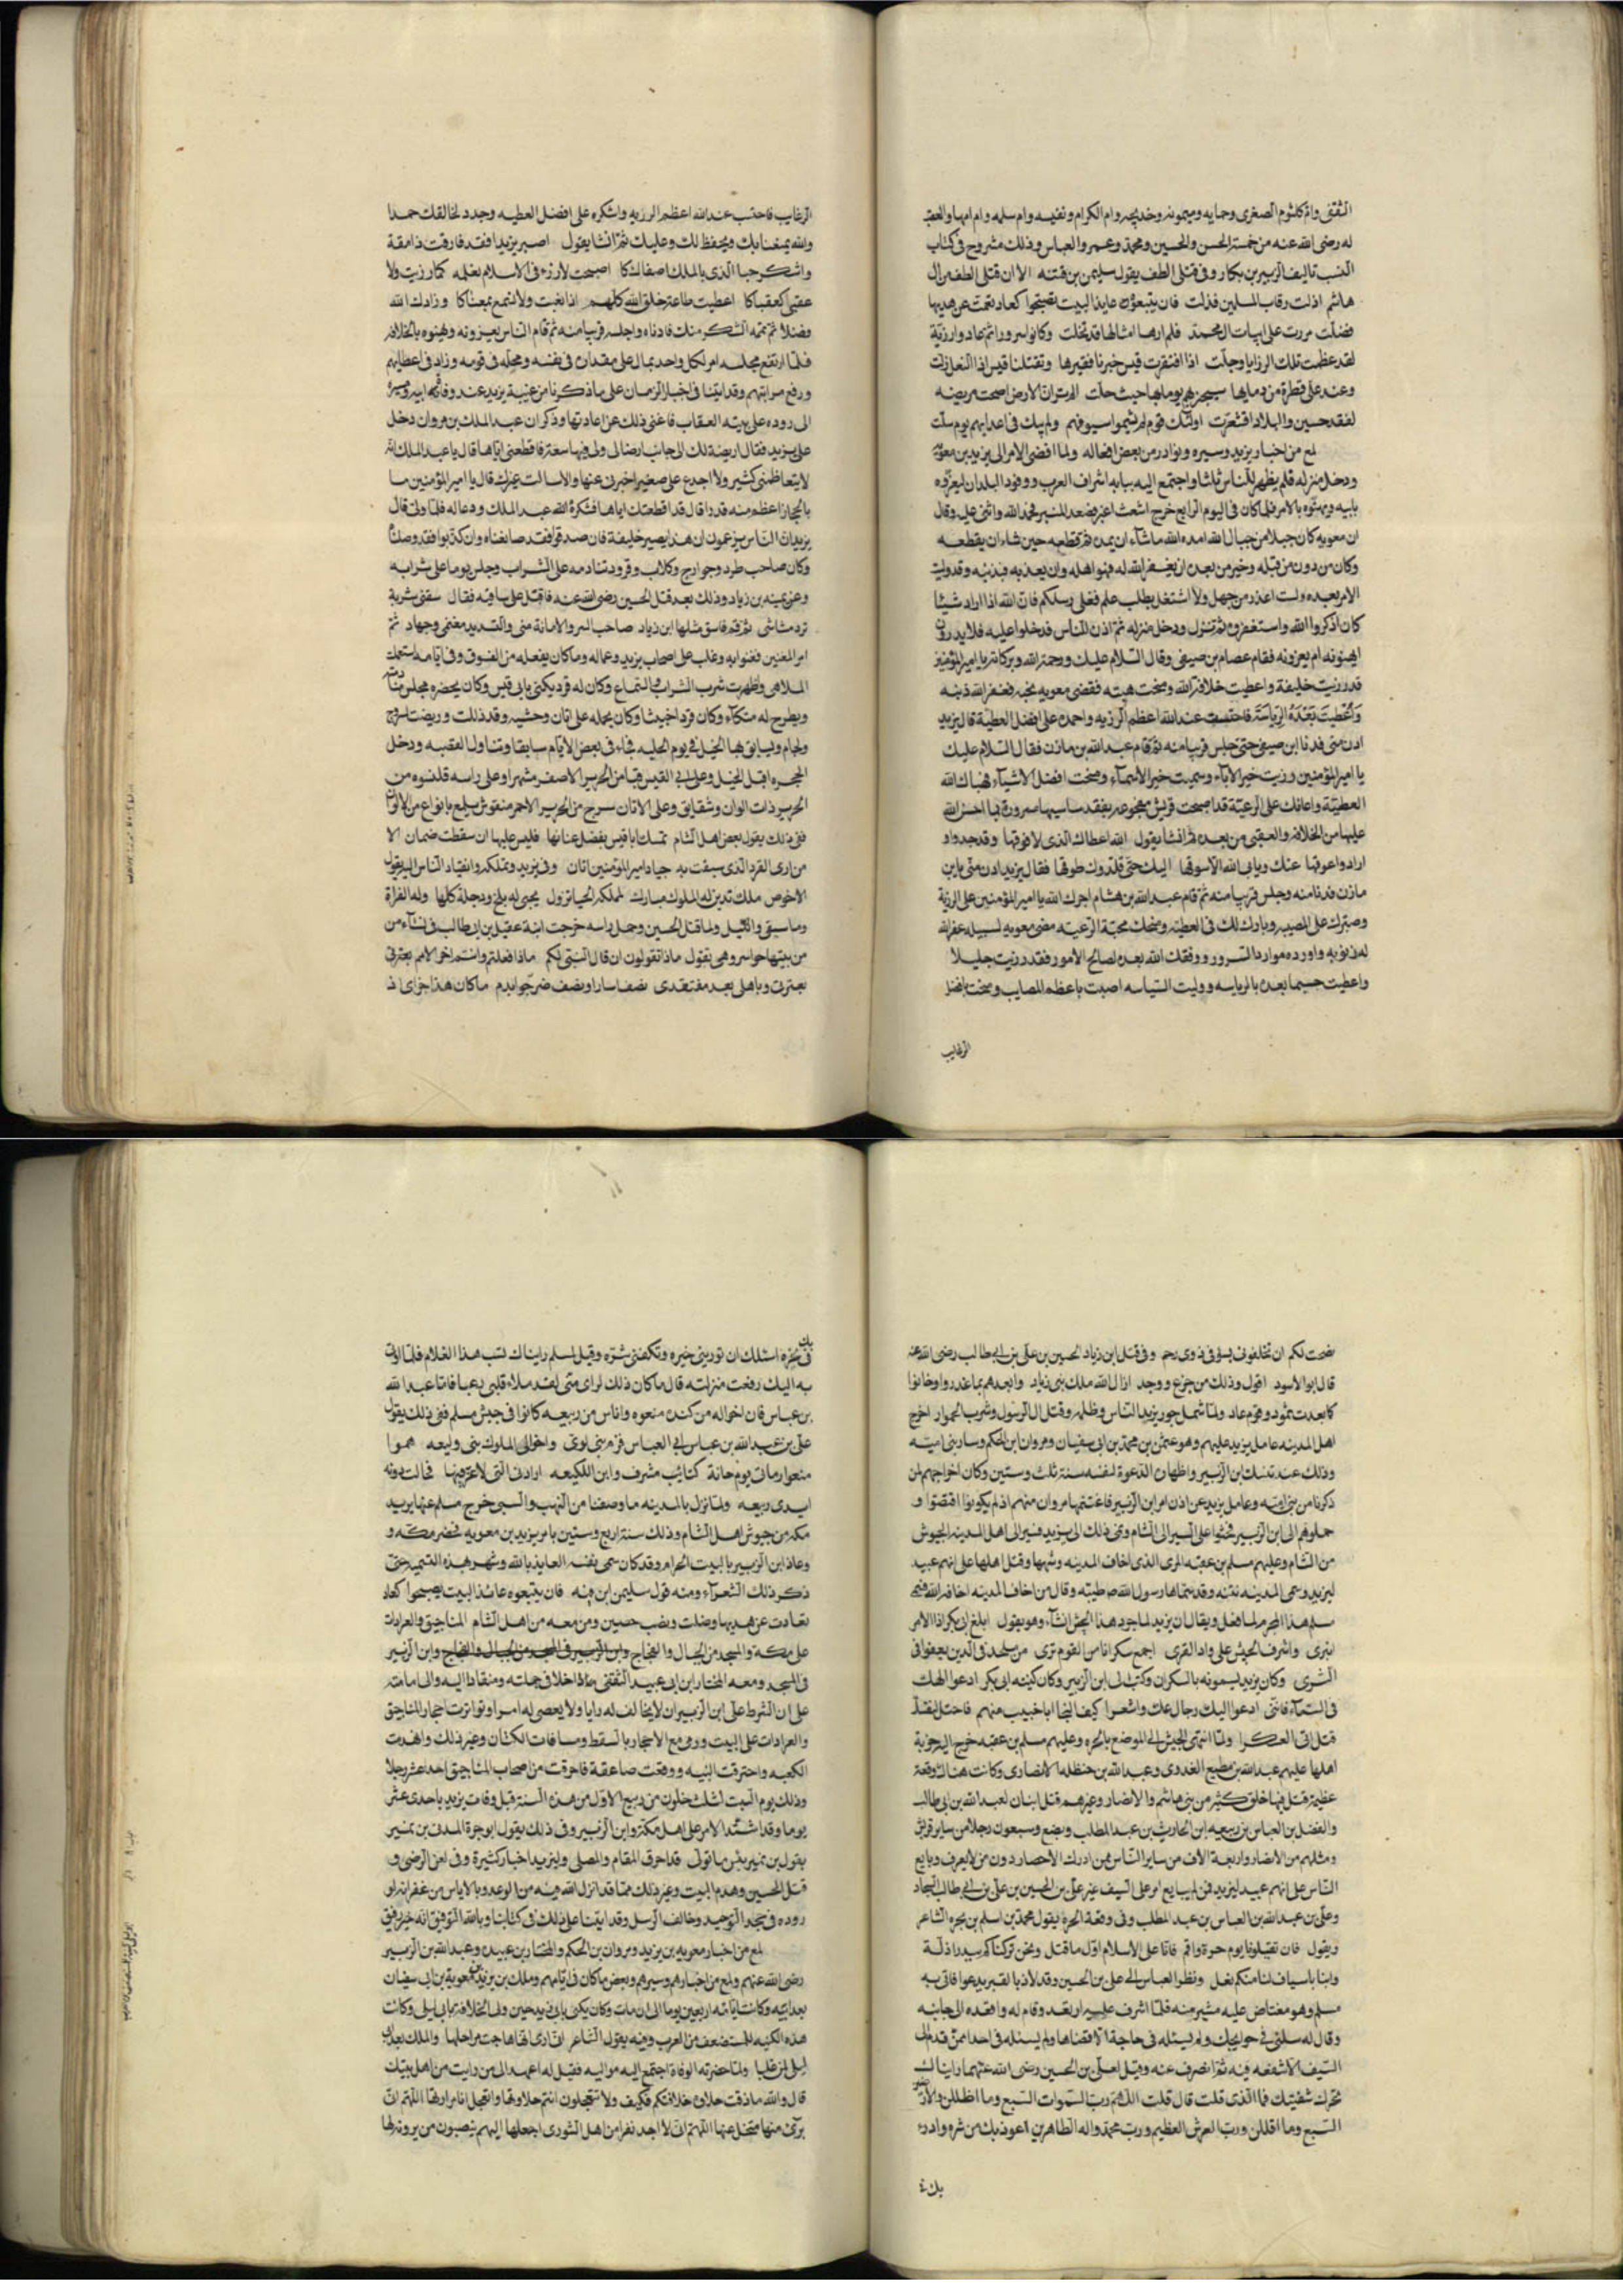 الثقفى وام كلثوم الصغرى وجمايه وميمونه وخديجه وام الكرام ونفيسه وام سلمه وام ابيها والعقب
له رضى الله عنه من خمسة الحسن والحسين ومحمد وعمر والعباس وذلك مشروح فى كتاب
النسب تاليف الزبير بن بكار وفى قتلى الطف يقول سليمن بن قتته الا ان قتلى الطف من ال
هاشم اذلت رقاب المسلمين فذلت فان يتبعوه عايذ البيت يصبحوا كعاد تعمت عن هديها
فضلت مررت على ابيات ال محمد فلم ارها امثالها قد تخلت وكانوا سرورا ثم عادوا رزية
لقد عظمت تلك الرزايا وجلت اذا افتقرت قيس خبرنا فقيرها وتقتلنا قيس اذا النعل زلت
وعند على قطرة من دمايها سيجزيهم يوما بها حيث حلت الم تر ان الارض اصبحت مريضه
لفقد حسين والبلاد اقشعرت اولئك قوم لم يشيموا سيوفهم ولم يك فى اعدايهم يوم سلت
لمع من اخبار يزيد وسيره ونوادر من بعض افعاله ولما افضى الامر الى يزيد بن معوية
ودخل منزله فلم يظهر للناس ثلثا واجتمع اليه ببابه اشراف العرب ووفود البلدان ليعزوه
بابيه ويهنوه بالامر فلما كان فى اليوم الرابع خرج اشعث اغبر فصعد المنبر فحمد الله واثنى عليه وقال
ان معويه كان حبلا من حبال الله امده الله ما شاء ان يمده ثم قطعه حين شاء ان يقطعه
وكان من دون من قبله وخير من بعده ان يغفر الله له فهو اهله وان يعذبه فبذنبه وقد وليت
الامر بعده ولست اعذر من جهل ولا اشتغل بطلب علم فعلى رسلكم فان الله اذا اراد شيئا
كان اذكروا الله واستغفروه ثم نزل ودخل منزله ثم اذن للناس فدخلوا عليه فلا يدرون
ايهنونه ام يعزونه فقام عصام بن صيفى وقال السلام عليك ورحمة الله وبركاته يا امير المؤمنين
قد رزيت خليفة واعطيت خلافة الله ومنحت هبته فقضى معويه نحبه فغفر الله ذنبه
واعطيت بعده الرياسة فاحتسب عند الله اعظم الرزيه واحمده على افضل العطية قال يزيد
ادن منى فدنا ابن صيفى حتى جلس قريبا منه ثم قام عبد الله بن مازن فقال السلام عليك
يا امير المؤمنين رزيت خير الاباء وسميت خير الاسماء ومنحت افضل الاشياء فهناك الله
العطية واعانك على الرعية قد اصبحت قريش مفجوعه بفقد ساسيها مسرورة بما احسن الله
عليها من الخلافه والعقبى من بعده ثم انشا يقول الله اعطاك الذى لا فوقها وقد جدواد
ارادوا عوقها عنك ويابى الله الا سوقها اليك حتى قلدوك طوقها فقال يزيد ادن منى يا بن
مازن فدنا منه وجلس قريبا منه ثم قام عبد الله بن هشام اجرك الله يا امير المؤمنين على الرزية
وصبرك على المصيبه وبارك لك فى العطيه ومنحك محبة الرعيته مضى معويه لسبيله غفر الله
له ذنوبه واورده موارد السرور ووفقك الله بعده لصالح الامور فقد رزيت جليلا
واعطيت جسيما بعده بالرياسه ووليت السياسه اصبت باعظم المصايب ومنحت افضل
الرغايب
الرغايب فاحتسب عند الله اعظم الرزيه واشكره على افضل العطيه وجدد لخالقك حمدا
والله يمتعنا بك ويحفظ لك وعليك ثم انشا يقول اصبر يزيد افقد فارقت ذا مقة
واشكر حبا الذى بالملك اصفاكا اصبحت لا رزء فى الاسلام نعلمه كما رزيت ولا
عقبى كعقباكا اعطيت طاعة خلق الله كلهم اذا بغيت ولا نسمع بمعناكا وزادك الله
فضلا ثم تمه الشكر منك فادناه واجلسه قريبا منه ثم قام الناس يعزونه ويهنوه بالخلافه
فلما ارتفع مجلسه امر لكل واحد بمال على مقداره فى نفسه ومحله فى قومه وزاد فى اعطايهم
ورفع مراتبهم وقد اتينا فى اخبار الزمان على ما ذكرنا من غيبة يزيد عند وفاة ابيه ومسيره
الى روده على ثنية العقاب فاغنى ذلك عن اعادتها وذكر ان عبد الملك بن مروان دخل
على يزيد فقال اريضة لك الى جانب ارضا لى ولى فيها سعة فاقطعنى اياها قال يا عبد الملك انه
لا يتعاظمنى كثير ولا اجدع على صغير اخبرنى عنها والا سالت غيرك قال يا امير المؤمنين ما
بالحجاز اعظم منه قدرا قال قد اقطعتك اياها فشكره الله عبد الملك ودعا له فلما ولى قال
يزيد ان الناس يزعمون ان هذا يصير خليفة فان صدقوا فقد صانعناه وان كذبوا فقد وصلناه
وكان صاحب طرد وجوارح وكلاب وقرود تنادمه على الشراب وجلس يوما على شرابه
وعن يمينه بن زياد وذلك بعد قتل الحسين رضى الله عنه فاقبل على ساقيه فقال سقنى شربة
ترد مشاشى ثم قم فاسق مثلها ابن زياد صاحب السر والامانة منى والتسديد مغنمى وجهاد ثم
امر المغنين فغنوا به وغلب على اصحاب يزيد وعماله وما كان يفعله من الفسوق وفى ايامه استعملت
الملاهى واظهرت شرب الشراب والسماع وكان له قرد يكنى بابى قيس وكان يحضره مجلس منادمته
ويطرح له متكاء وكان قردا خبيثا وكان يحمله على اتان وحشيه وقد ذللت وريضت لسرج
ولجام ويسابق بها الخيل فى يوم الحلبه فجاء فى بعض الايام سابقا وتناول القصبه ودخل
الحجره اقبل الخيل وعلى ابى القيس قبا من الحرير الاصفر مشهرا وعلى راسه قلنسوه من
الحرير ذات الوان وشقايق وعلى الاتان سرج من الحرير الاحمر منقوش ملمع بانواع من الالوان
ففى ذلك يقول بعض اهل الشام تمسك ابا قيس بفضل عنانها فليس عليها ان سقطت ضمان الا
من ارى القرد الذى سبقت به جياد امير المؤمنين اتان وفى يزيد وتملكه وانقياد الناس اليه يقول
الاخوص ملك تدين له الملوك مبارك لملكه الجبال تزول يجبى له بلخ ودجلة كلها وله الفراة
وما سقى والنيل ولما قتل الحسين وحمل راسه خرجت ابنة عقيل بن ابى طالب فى نساء من
من بيتها حواسر وهى تقول ماذا تقولون ان قال النبى لكم ماذا فعلتم وانتم اخر الامم بعترتى
بعترتى وباهلى بعد مفتقدى نصف اسارا ونصف ضرجوا بدم ما كان هذا جزاى اذ
نصحت لكم ان تخلفونى بسوء فى ذوى رحم وفى قتل ابن زياد الحسين بن على بن ابى طالب رضى الله عنه
قال ابو الاسود اقول وذلك من جزع ووجد ازال الله ملك بنى زياد وابعدهم بما غدروا وخانوا
كما بعدت ثمود وقوم عاد ولما شمل جور يزيد الناس وظلمه وقتل ال الرسول وشرب الخمور اخرج
اهل المدينه عامل يزيد عليهم وهو عثمن بن محمد بن ابى سفيان ومروان ابن الحكم وساير بنى اميه
وذلك عند تنسك ابن الزبير واظهاره الدعوة لنفسه سنة ثلث وستين وكان اخراجهم لمن
ذكرنا من بنى اميه وعامل يزيد عن اذن امر ابن الزبير فاغتنمها مروان منهم اذ لم يكونوا اقتصوا و
حملوهم الى ابن الزبير فحثوا على السير الى الشام ونمى ذلك الى يزيد فسير الى اهل المدينه الجيوش
من الشام وعليهم مسلم بن عقبه المرى الذى اخاف المدينه ونهبها وقتل اهلها على انهم عبيد
ليزيد وسمى المدينه نتنه وقد سماها رسول الله صم طيبه وقال من اخاف المدينه اخافه الله فسمى
مسلم هذا المجرم لما فعل ويقال ان يزيد لما جرد هذا الجيش انشاء وهو يقول ابلغ ابى بكر اذا الامر
انبرى واشرف الجيش على واد القرى اجمع سكرانا من القوم ترى من ملحد فى الدين يعفوا فى
الشرى وكان يزيد يسمونه بالسكران وكتب الى ابن الزبير وكان كنيته ابى بكر ادعوا الهك
فى السماء فاننى ادعوا اليك رجال عك واشعرا كيف النجا ابا خبيب منهم فاحتل لنفسك
قبل اتى العسكرا ولما انتهى الجيش الى الموضع بالحره وعليهم مسلم بن عقبه خرج اليه حربة
اهلها عليهم عبد الله بن مطيع الغدوى وعبد الله بن حنظله الانصارى وكانت هناك وقعة
عظيمة قتل فيها خلق كثير من بنى هاشم والانصار وغيرهم قتل ابنان لعبد الله بن ابى طالب
والفضل بن العباس بن ربيعه ابن الحارث بن عبد المطلب وبضع وسبعون رجلا من ساير قريش
ومثلهم من الانصار واربعة الاف من ساير الناس ممن ادرك الاحصار دون من لا يعرف وبايع
الناس على انهم عبيد ليزيد فمن لم يبايع امر على السيف غير على بن الحسين بن على بن ابى طالب السجاد
وعلى بن عبد الله بن العباس بن عبد المطلب وفى وقعة الحره يقول محمد بن اسلم بن بجره الشاعر
ويقول فان تقتلونا يوم حرة واقم فانا على الاسلام اول ما قتل ونحن تركناكم ببدر اذلة
وابنا باسياف لنا منكم نفل ونظر العباس الى على بن الحسين وقد لاذ بالقبر يدعوا فاتى به
مسلم وهو مغتاض عليه مشير منه فلما اشرف عليه ارتعد وقام له واقعده الى جانبه
وقال له سلنى فى حوايجك ولم يسئله فى حاجة الا قضاها ولم يسئله فى احدا ممن قدم الى
السيف الا شفعه فيه ثم انصرف عنه وقيل لعلى بن الحسين رضى الله عنهما رايناك
تحرك شفتيك فما الذى قلت قال قلت اللهم رب السموات السبع وما اظللن والارضين
السبع وما اقللن ورب العرش العظيم ورب محمد واله الطاهرين اعوذ بك من شره وادرء
بك فى
بك فى نحره اسئلك ان تورينى خيره وتكفنى شره وقيل لمسلم رايناك لسب هذا الغلام فلما اوتى
به اليك رفعت منزلته قال ما كان ذلك لراى منى لقد ملاء قلبى رعبا فاتا عبد الله
بن عباس فان اخواله من كنده منعوه واناس من ربيعه كانوا فى جيش مسلم ففى ذلك يقول
على بن عبد الله بن عباس ابى العباس قرم بنى لوى واخوالى الملوك بنى وليعه هموا
منعوا رمائى يوم حانة كتايب مشرف وابن اللكيعه ارادنى التى لا عز فيها فحالت دونه
ايدى ربيعه ولما نزل بالمدينه ما وصفنا من النهب والسبى خرج مسلم عنها يريد
مكه من جيوش اهل الشام وذلك سنة اربع وستين بامر يزيد بن معويه فحضر مكه و
وعاذ ابن الزبير بالبيت الحرام وقد كان سمى نفسه العايذ بالله وشهر هذه التسميه حتى
ذكر ذلك الشعراء ومنه قول سليمن ابن قته فان يتبعوه عائذ البيت يصبحوا كعاد
تعادت عن هديها وضلت ونصب حصين ومن معه من اهل الشام المناجيق والعرادات
على مكه والمسجد من الجبال والفجاج وابن الزبير فى المسجد من الجبال والفجاج وابن الزبير
فى المسجد ومعه المختار ابن ابى عبيد الثقفى داخلا فى جملته ومنقادا اليه والى امامته
على ان الشرط على ابن الزبير ان لا يخالف له رايا ولا يعصى له امرا وتواترت احجار المناجيق
والعرادات على البيت ورمى مع الاحجار بالسقط ومسافات الكتان وغير ذلك وانهدمت
الكعبه واحترقت البنيه ووقعت صاعقة فاحرقت من اصحاب المناجيق احدا عشر رجلا
وذلك يوم السبت لثلث خلون من ربيع الاول من هذه السنة قبل وفات يزيد باحدى عشر
يوما وقد اشتد الامر على اهل مكة وابن الزبير وفى ذلك يقول ابو جرة المدنى بن نمير
بقول بن نمير بئس ما تولى قد احرق المقام والمصلى وليزيد اخبار كثيرة وفى لعن الرضى و
قتل الحسين وهدم البيت وغير ذلك مما قد انزل الله فيه من الوعد وبالاياس من غفرانه لو
روده فى جحد التوحيد وخالف الرسل وقد اتينا على ذلك فى كتابنا وبالله التوفيق انه خير رفيق
لمع من اخبار معويه بن يزيد ومروان بن الحكم والمختار بن عبيده وعبد الله بن الزبير
رضى الله عنهم ولمع من اخبارهم وسيرهم وبعض ما كان فى ايامهم وملك بن يزيد بن معوية بن ابى سفيان
بعد ابيه وكانت ايامه اربعين يوما الى ان مات وكان يكنى بابى يزيد حين ولى الخلافه بابى ليلى وكانت
هذه الكنيه للمستضعف من العرب وفيه يقول الشاعر انى ارى فتنة هاجت مراجلها والملك بعد ابى
ليلى لمن غلبا ولما حضرته الوفاة اجتمع اليه مواليه فقيل له اعهد الى من رايت من اهل بيتك
قال والله ما ذقت حلاوة خلافتكم فكيف ولا تتعجلون انتم حلاوتها واتعجل انا مرارتها اللهم انى
برئ منها متخل عنها اللهم انى لا اجد نفرا من اهل الشورى اجعلها اليهم ينصبون من يرونه لها